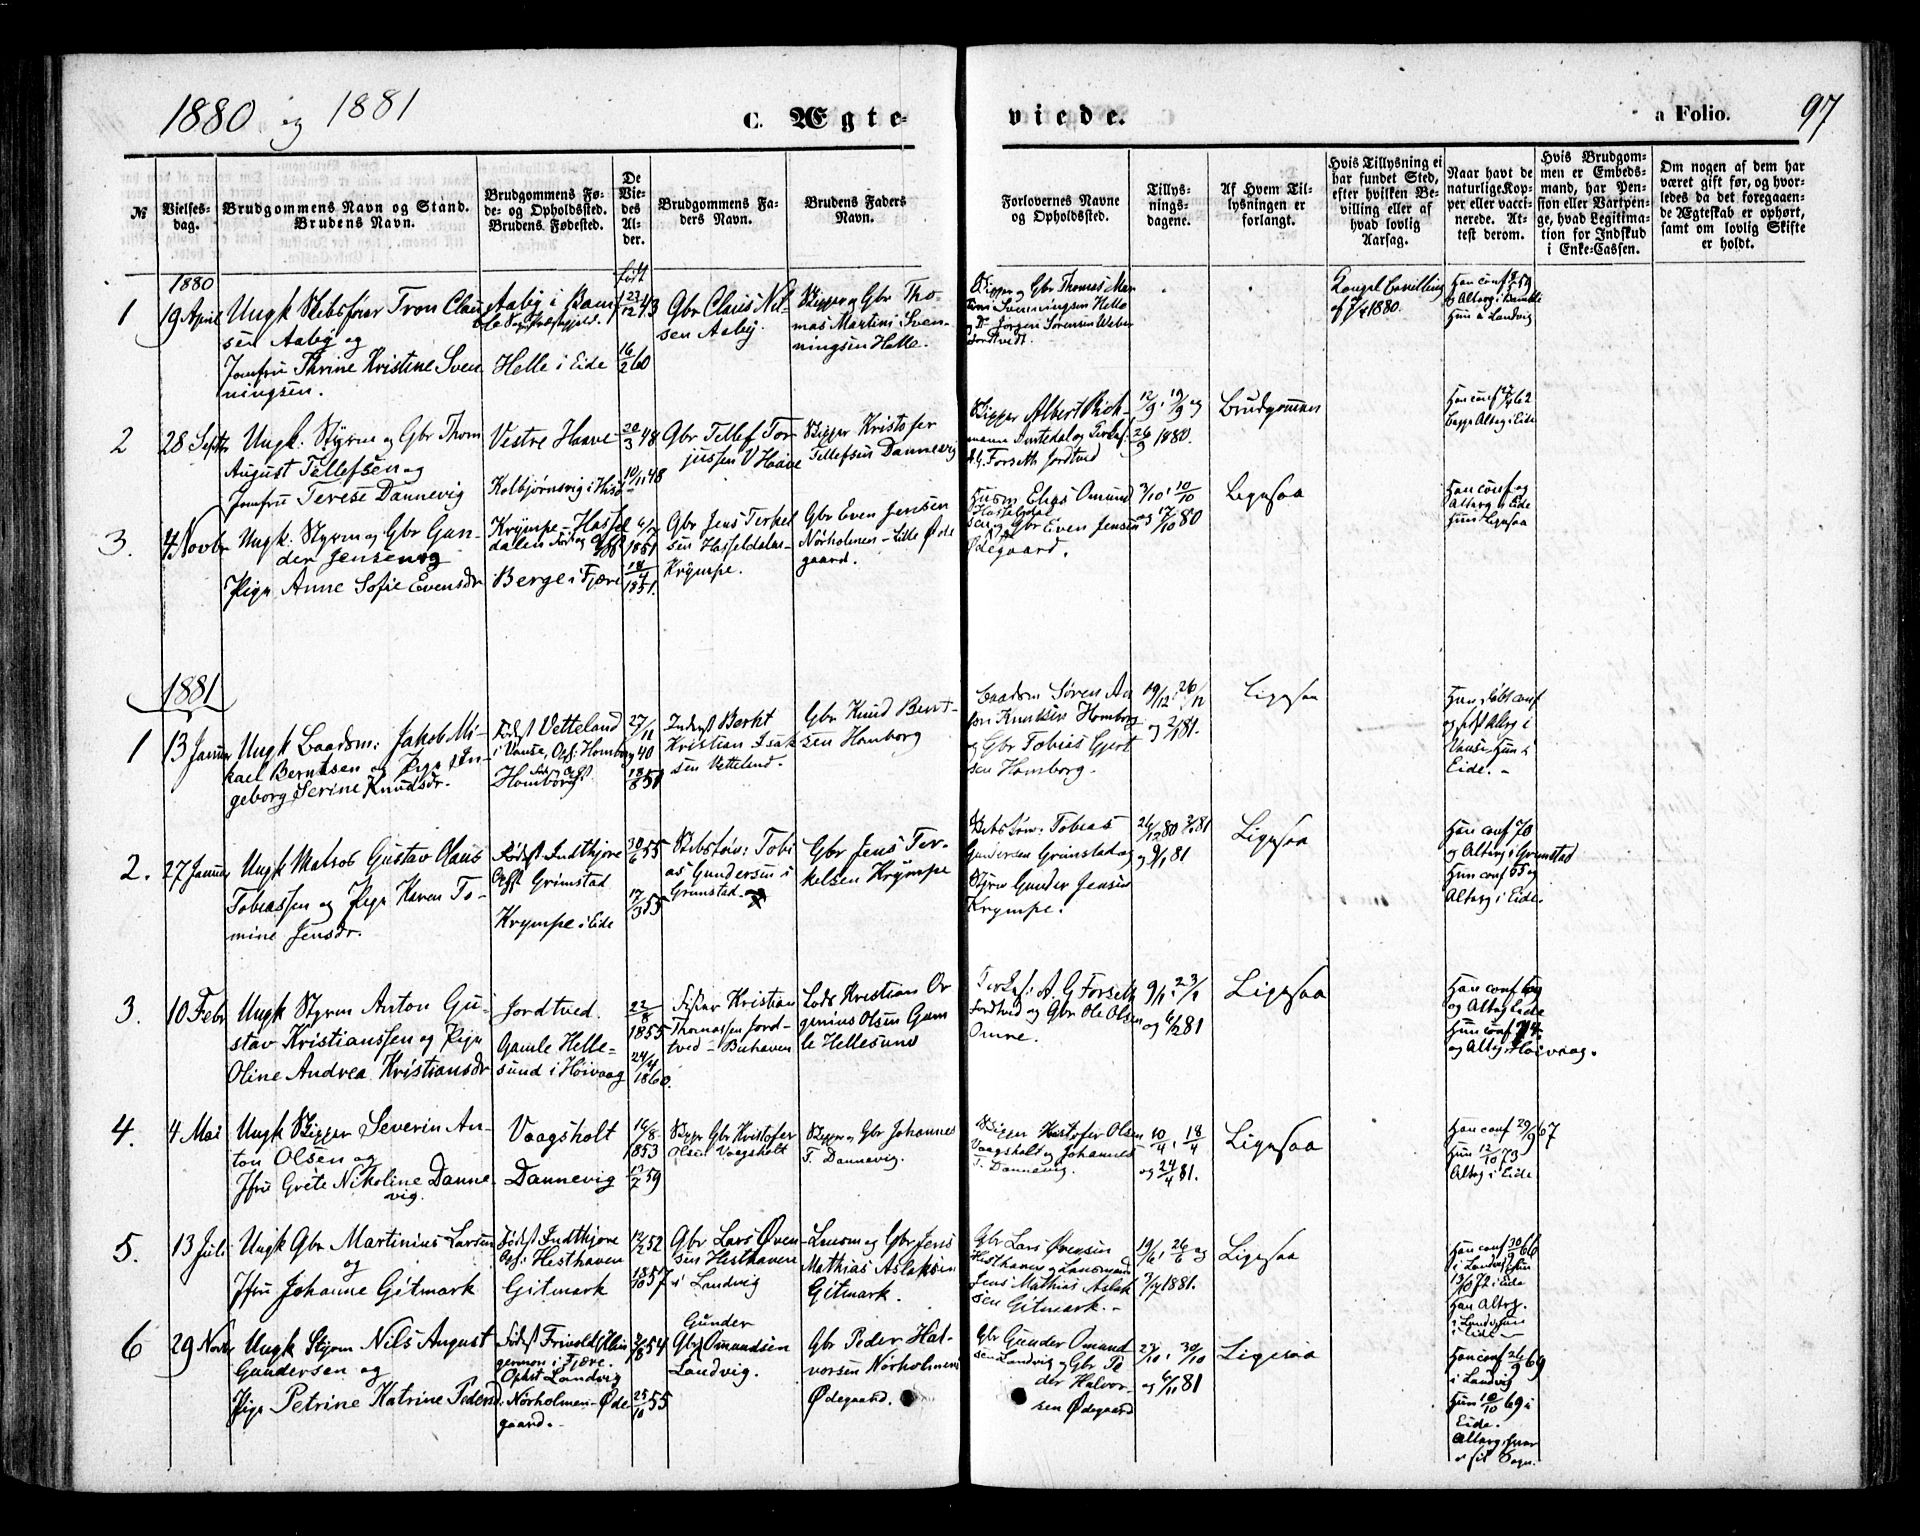 1880 og 1881
C. Ægte-
viede.
a Folio. 97
№
Vielses-
dag.
Brudgommens Navn og Stand.
Brudens Navn.
Brudgommens Fø-
de- og Opholdssted.
Brudens Fødested.
De
Vie-
des
Al-
der.
Brudgommens Fa-
ders Navn.
Brudens Faders
Navn.
Forlovernes Navne
og Opholdssted.
Tillys-
nings-
dagene.
Af Hvem Til-
lysningen er
forlangt.
Hvis Tillysning ei
har fundet Sted,
efter hvilken Be-
villing eller af
hvad lovlig
Aarsag.
Naar havt de
naturlige Kop-
per eller vacci-
nerede. At-
test derom.
Hvis Brudgom-
men er Embeds-
mand, har Pen-
sion eller Vartpen-
ge, hvad Legitima-
tion for Indskud
i Enke-Cassen.
Om nogen af dem har
været gift før, og hvor-
ledes da det foregaaen-
de Ægteskab er ophørt,
samt om lovlig Skifte
er holdt.
1880
født
1
19 April
Ungk Skibsfører Tron Claus
sen Aaby og
Jomfru Thrine Kristine Sven
ningsen.
Aaby i Bam
Helle i Eide
23/12 43
16/2 60
Gbr Claus Niel
sen Aaby.
Skipper og Gbr Tho-
mas Martini Sven-
ningsen Helle.
Skipper og Gbr Thomas Mar
tini Svenningsen Helle
og Jørgen Sørensen Weber
Jordtvedt.
Kongel Bevilling
af 7/4 1880.
Altbrg. i Bamble
Hun a Landvig
2
28 Septbr
Ungk. Styrm og Gbr Thom
August Tellefsen og
Jomfru Terese Dannevig
Vestre Haave
Kolbjørnsvig i Hisø
20/3 48
10/11 48
Gbr Tellef Tor
jussen V Haave
Skipper Kristofer
Tellefsen Dannevig
Skipper Albert Rich-
A. G. Forseth Jordtved
12/9, 19/9 og
26/9 1880.
Brudgommen
Han conf 27/4 62
Begge Altbrg i Eide
3.
4 Novbr
Ungk. Styrm og Gbr Gun-
der Jensen og
Pige Anne Sofie Evensdr
Krympe-Hassel
dalen
Berge i Fjære
6/2
1851
18/4
1851.
Gbr Jens Terkel
sen Hasseldalen-
Krympe.
Gbr Even Jensen
Nørholmen-Lille Øde
gaard.
Husm Elias Omund
Hasseldal
sen og Gbr Even Jensen
Ødegaard.
3/10, 10/10
og 17/10 80
Ligesaa
Han conf og
Altbrg i Eide
Hun Ligesaa
1881
1
13 Januar
Ungk Baadsm: Jakob Mi-
kael Berntsen og Pige In-
geborg Serine Knudsdr.
Født Vetteland
i Vanse, Oph: Homborg
Homborg
27/11
40
18/8 51
Inderst Bernt
Kristian Isak
sen Vetteland.
Gbr Knud Bernt-
sen Homborg
Baadsm Søren An
ton Knudsen Homborg
og Gbr Tobias Gjert
sen Homborg.
19/12, 26/12
og 2/1 81.
Ligesaa
Han født conf
og sidst Altbrg i
Vanse. Hun i
Eide.
2.
27 Januar
Ungk Matros Gustav Olaus
Tobiassen og Pige Karen To-
mine Jensdr.
Født Indtfjore
Oph Grimstad
Krympe i Eide
30/6 55
17/3 55
Skibstøm: Tobi
as Gundersen i
Grimstad.
Gbr Jens Ter-
kelsen Krympe
Skibstøm: Tobias
Gundersen Grimstad og
Styrm Gunder Jensen
Krympe.
26/12 80 2/1 81
og 9/1 81
Ligesaa
Han conf 70
og Altbrg i Grimstad
Hun conf 65 og
Altbrg i Eide.
3.
10 Febr
Ungk Styrm Anton Gu-
stav Kristianssen og Pige
Oline Andrea Kristiansdr
Jordtved.
Gamle Helle-
sund i Høivaag
22/8
1855
24/4
1860.
Fisker Kristian
Thomassen Jord-
tved - Buhaven
Lods Kristian Or
genius Olsen Gam
le Hellesund
A G Forseth
Jordtved og Gbr Ole Olsen
Omre.
9/1, 23/1
og 6/2 81
Ligesaa
Han conf 69
og Altbrg Eide
Hun conf 74
og Altbrg Høivaag.
4.
4 Mai
Ungk Skipper Severin An-
ton Olsen og
Jfru Grete Nikoline Danne-
vig.
Vaagsholt
Dannevig
16/8
1853
17/7 59
Skippr Gbr Kristofer
Olsen Vaagsholt
Skipper og Gbr Johannes
T. Dannevig.
Skipper Kristofer Olsen
Vaagsholt og Johannes
T. Dannevig.
10/4, 18/4
og 24/4 81.
Ligesaa
Han conf 29/9 67
Hun 12/10 73
Altbrg i Eide
5.
13 Juli
Ungk Gbr Martinius Larsen
og
Jfru Johanne Gitmark
Født Indtfjore
Oph: Hesthaven
Gitmark
12/2 52
18/10 57
Gbr Lars Øven
sen Hesthaven
i Landvig
Lensm og Gbr Jens
Mathias Aslaksen
Gitmark.
Gbr Lars Øvensen
Hesthaven og Lensmand
Jens Mathias Aslak
sen Gitmark.
19/6, 26/6 og
3/7 1881.
Ligesaa
Han conf 30/9 66
i Landvig Hun
13/10 72 i Eide
Han Altbrg.
i Landvig Hun
i Eide
6
29 Novbr
Ungk Styrm Nils August
Gundersen og
Pige Petrine Katrine Pedersd
Født Frivold
i Fjære.
Ophst Landvig
Nørholmen-Øde
gaard.
54
25/10 55
Gunder
Gbr Omundsen
Landvig.
Gbr Peder Hal-
vorsen Nørholmen
Ødegaard.
Gbr Gunder Omund
sen Landvig og Gbr Pe
der Halvor-
sen Ødegaard
23/10, 30/10
og 6/11 81
Ligesaa
Han conf 26/9 69
i Landvig
Hun 10/10 69 i
Eide.
Altbrg. hver
i sit Sogn.